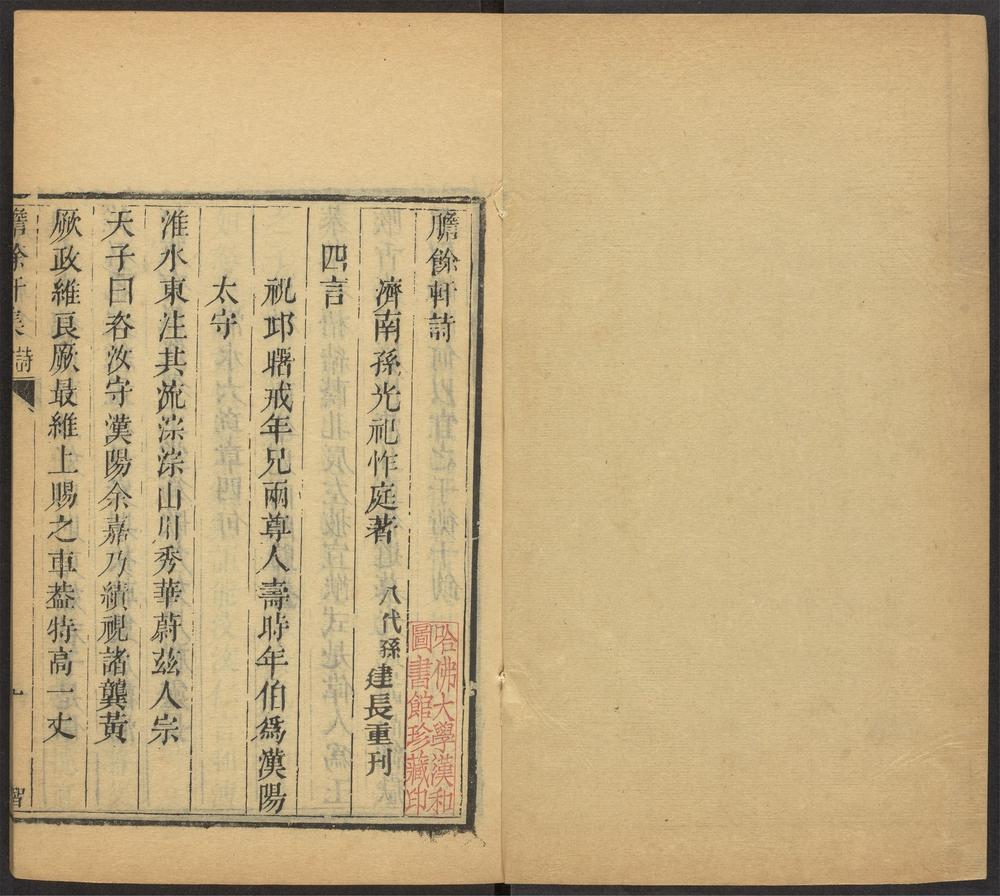 膽餘軒詩
濟南孫光祀怍庭著 八代孫建長重刊
四言
祝邱曙戒年兄兩尊人壽時年伯為漢陽
太守
淮水東注其流淙淙山川秀華蔚茲人宗
天子曰咨汝守漢陽余嘉乃績視諸龔黃
厥政維良厥最維上賜之車葢特高一丈
膽餘軒集 詩
哈佛大學漢和
圖書館珍藏印